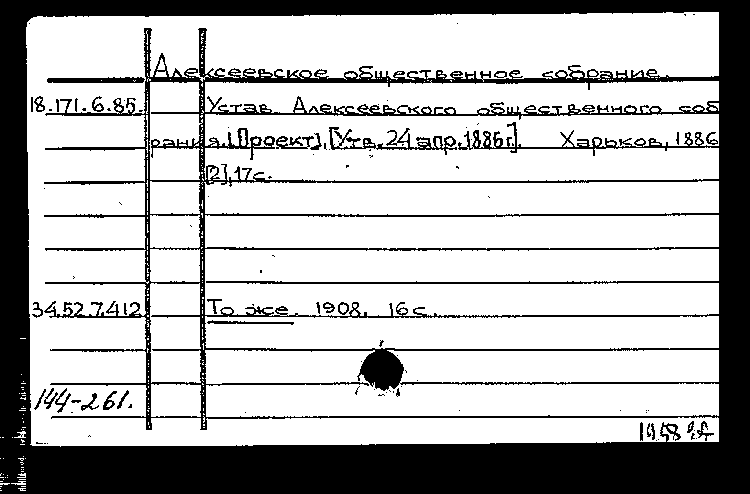 Алексеевское общественное собрание.
18.171.6.85. Устав Алексеевского общественного соб
рания. [Проект]. [Утв. 24 апр. 1886 г.]. Харьков, 1886
[2], 17 с.
34.52.7.412 То же. 1908. 16 с.
144-261.